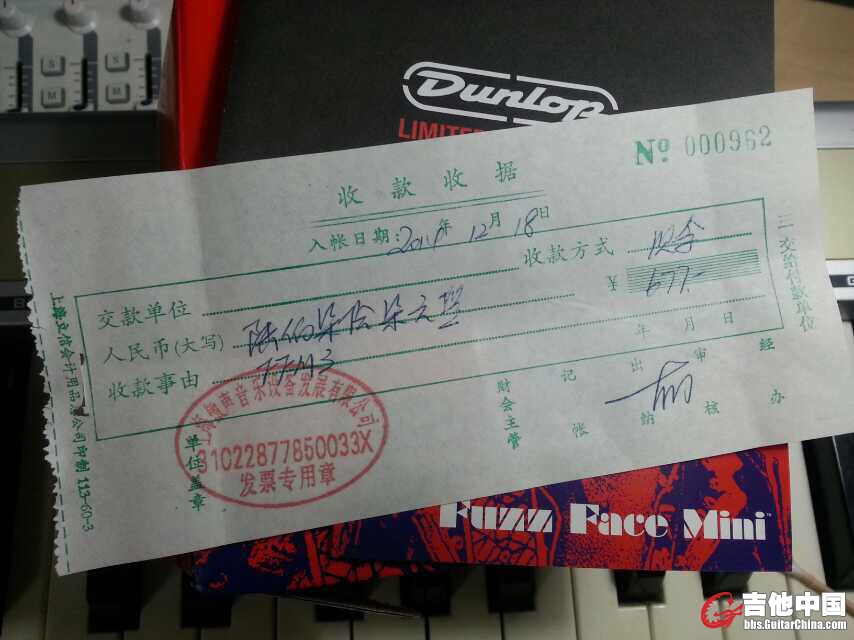 S S
M M
Dunlop
LIMITE
№ 000962
收款收据
入帐日期：2014年12月18日
收款方式 现金
交款单位
¥ 677.-
人民币(大写) 陆佰柒拾柒元整
收款事由 FFM3
年 月 日
财会主管 记帐 出纳 审核 经办
单位盖章
上海翘声音乐设备发展有限公司
31022877850033X
发票专用章
三 交给付款单位
上海立信会计用品总公司印制 113-60-3
Fuzz Face Mini™
吉他中国
bbs.GuitarChina.com